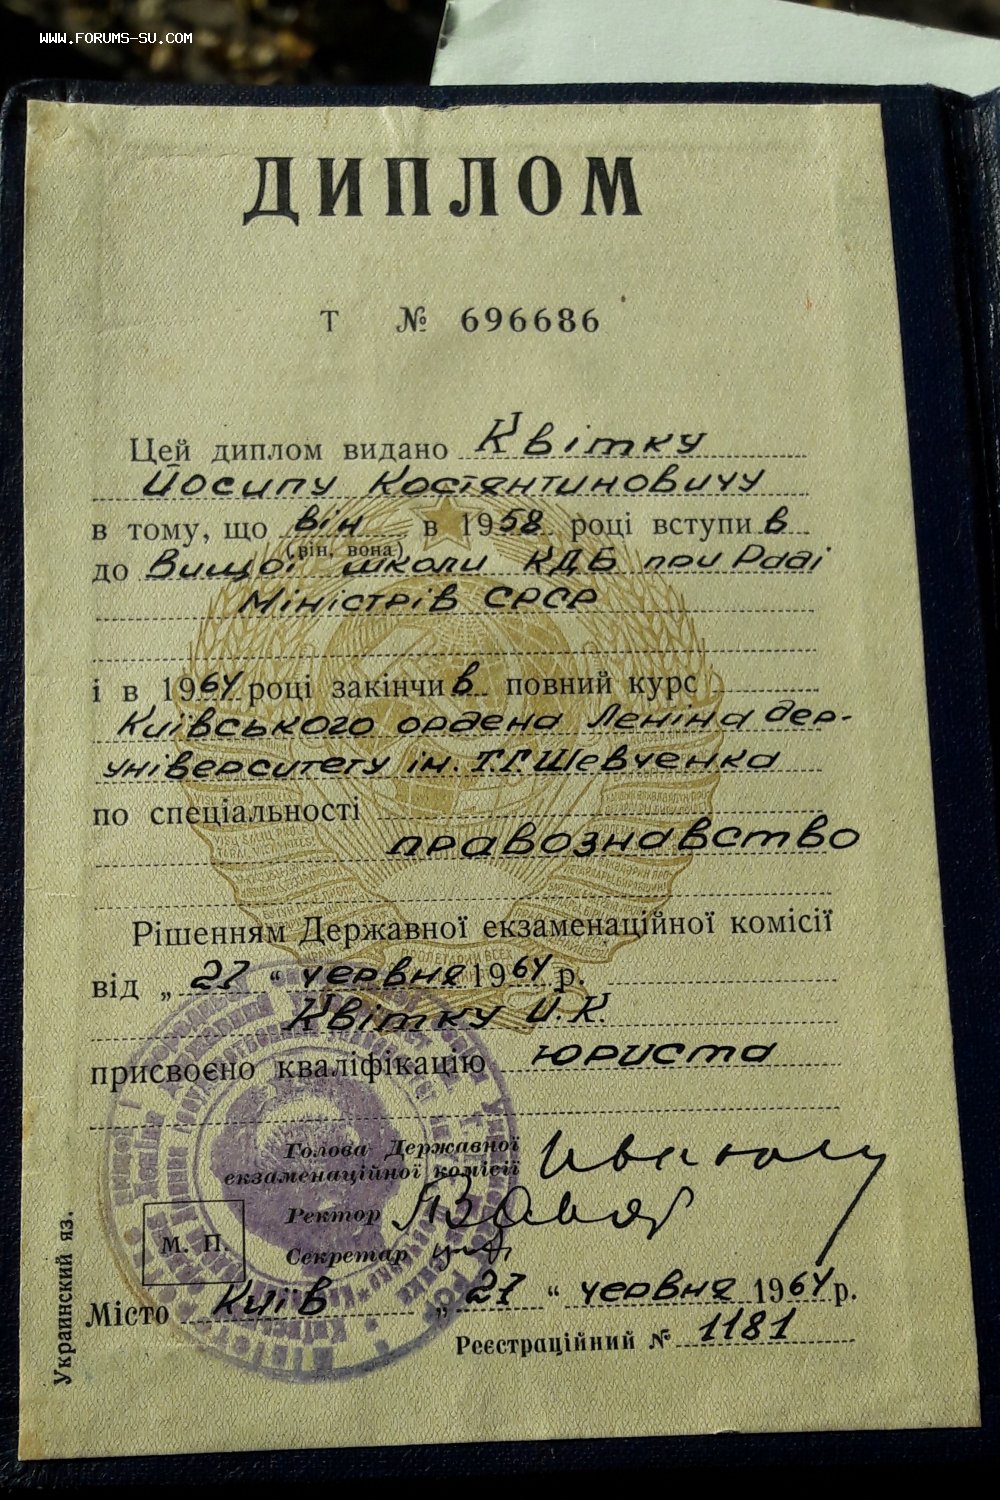 WWW.FORUMS-SU.COM
ДИПЛОМ
Т № 696686
Цей диплом видано Квітку
Йосипу Костянтиновичу
в тому, що він в 1958 році вступив
(він, вона)
до Вищої школи КДБ при Раді
Міністрів СРСР
і в 1964 році закінчив повний курс
Київського ордена Леніна дер-
університету ім. Т.Г. Шевченка
по спеціальності
правознавство
Рішенням Державної екзаменаційної комісії
від „27" червня 1964 р.
Квітку Й.К.
присвоєно кваліфікацію юриста
Голова Державної
екзаменаційної комісії
Ректор
Секретар
М. П.
Місто Київ „27" червня 1964 р.
Реєстраційний № 1181
Украинский яз.